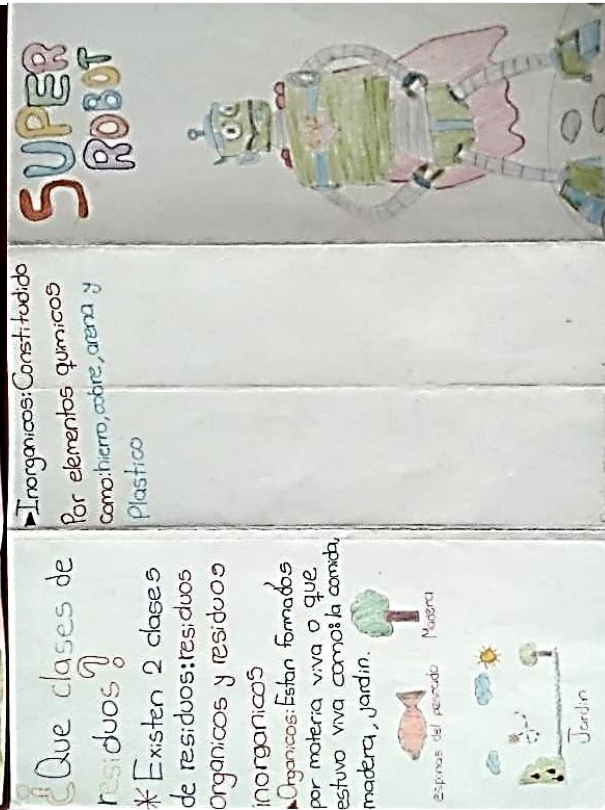 ¿Que clases de
residuos?
* Existen 2 clases
de residuos: residuos
Organicos y residuos
inorganicos
▸Organicos: Estan formados
por materia viva o que
estuvo viva como: la comida,
madera, jardin.
espinas del pescado
Madera
Jardin
▸Inorganicos: Constitudido
Por elementos quimicos
como: hierro, cobre, arena y
Plastico
SUPER
ROBOT